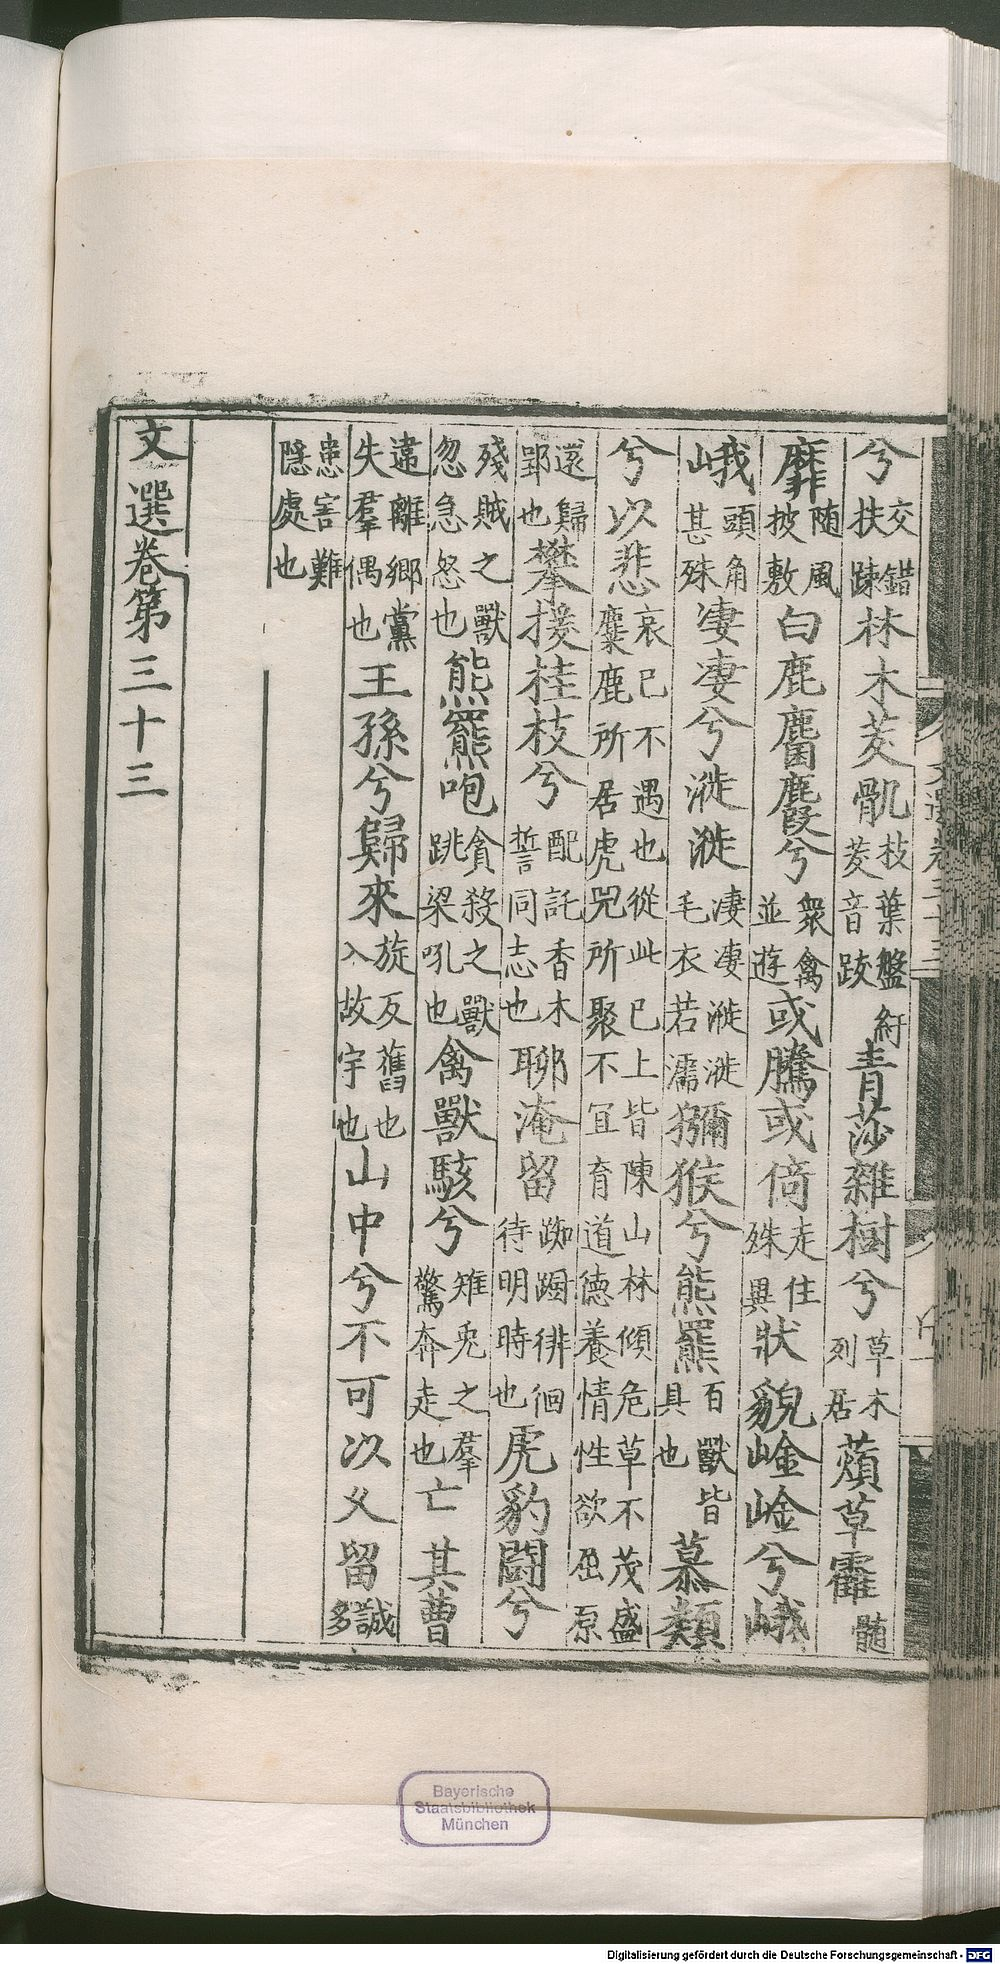 兮交錯扶踈林木茇骩枝葉盤紆茇音跋青莎雜樹兮草木列居薠草靃髓
靡随風披敷白鹿麏麚兮衆禽並遊或騰或倚走住殊異狀貌崯崯兮峨
峨頭角甚殊凄凄兮漇漇凄凄漇漇毛衣若濡獼猴兮熊羆百獸皆具也慕類
兮以悲哀已不遇也從此已上皆陳山林傾危草不茂盛麋鹿所居虎兕所聚不宜育道德養情性欲屈原
還歸郢也攀援桂枝兮配託香木誓同志也聊淹留踟蹰徘徊待明時也虎豹鬭兮
殘賊之獸忽急怒也熊羆咆貪殺之獸跳梁吼也禽獸駭兮雉兎之羣驚奔走也亡其曹
違離鄉黨失羣偶也王孫兮歸來旋反舊也入故宇也山中兮不可以久留誠多
患害難隱處也
文選卷第三十三
Bayerische
Staatsbibliothek
München
Digitalisierung gefördert durch die Deutsche Forschungsgemeinschaft - DFG